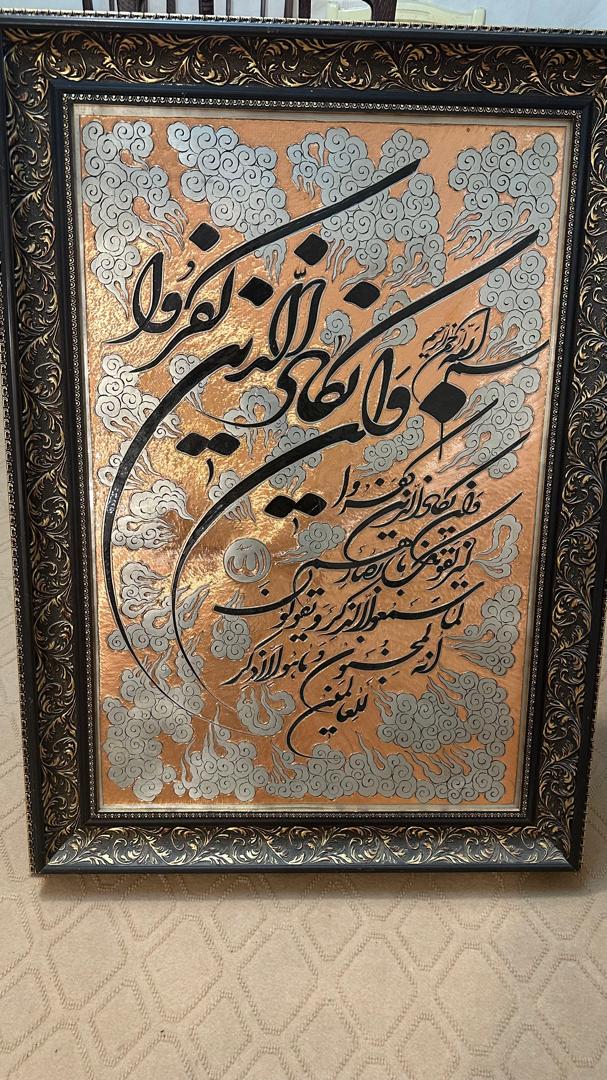 بسم الله الرحمن الرحیم
وان یکاد الذین کفروا
وان یکاد الذین کفروا
لیزلقونک بابصارهم
لما سمعوا الذکر و یقولون
انه لمجنون و ما هو الا ذکر
للعالمین